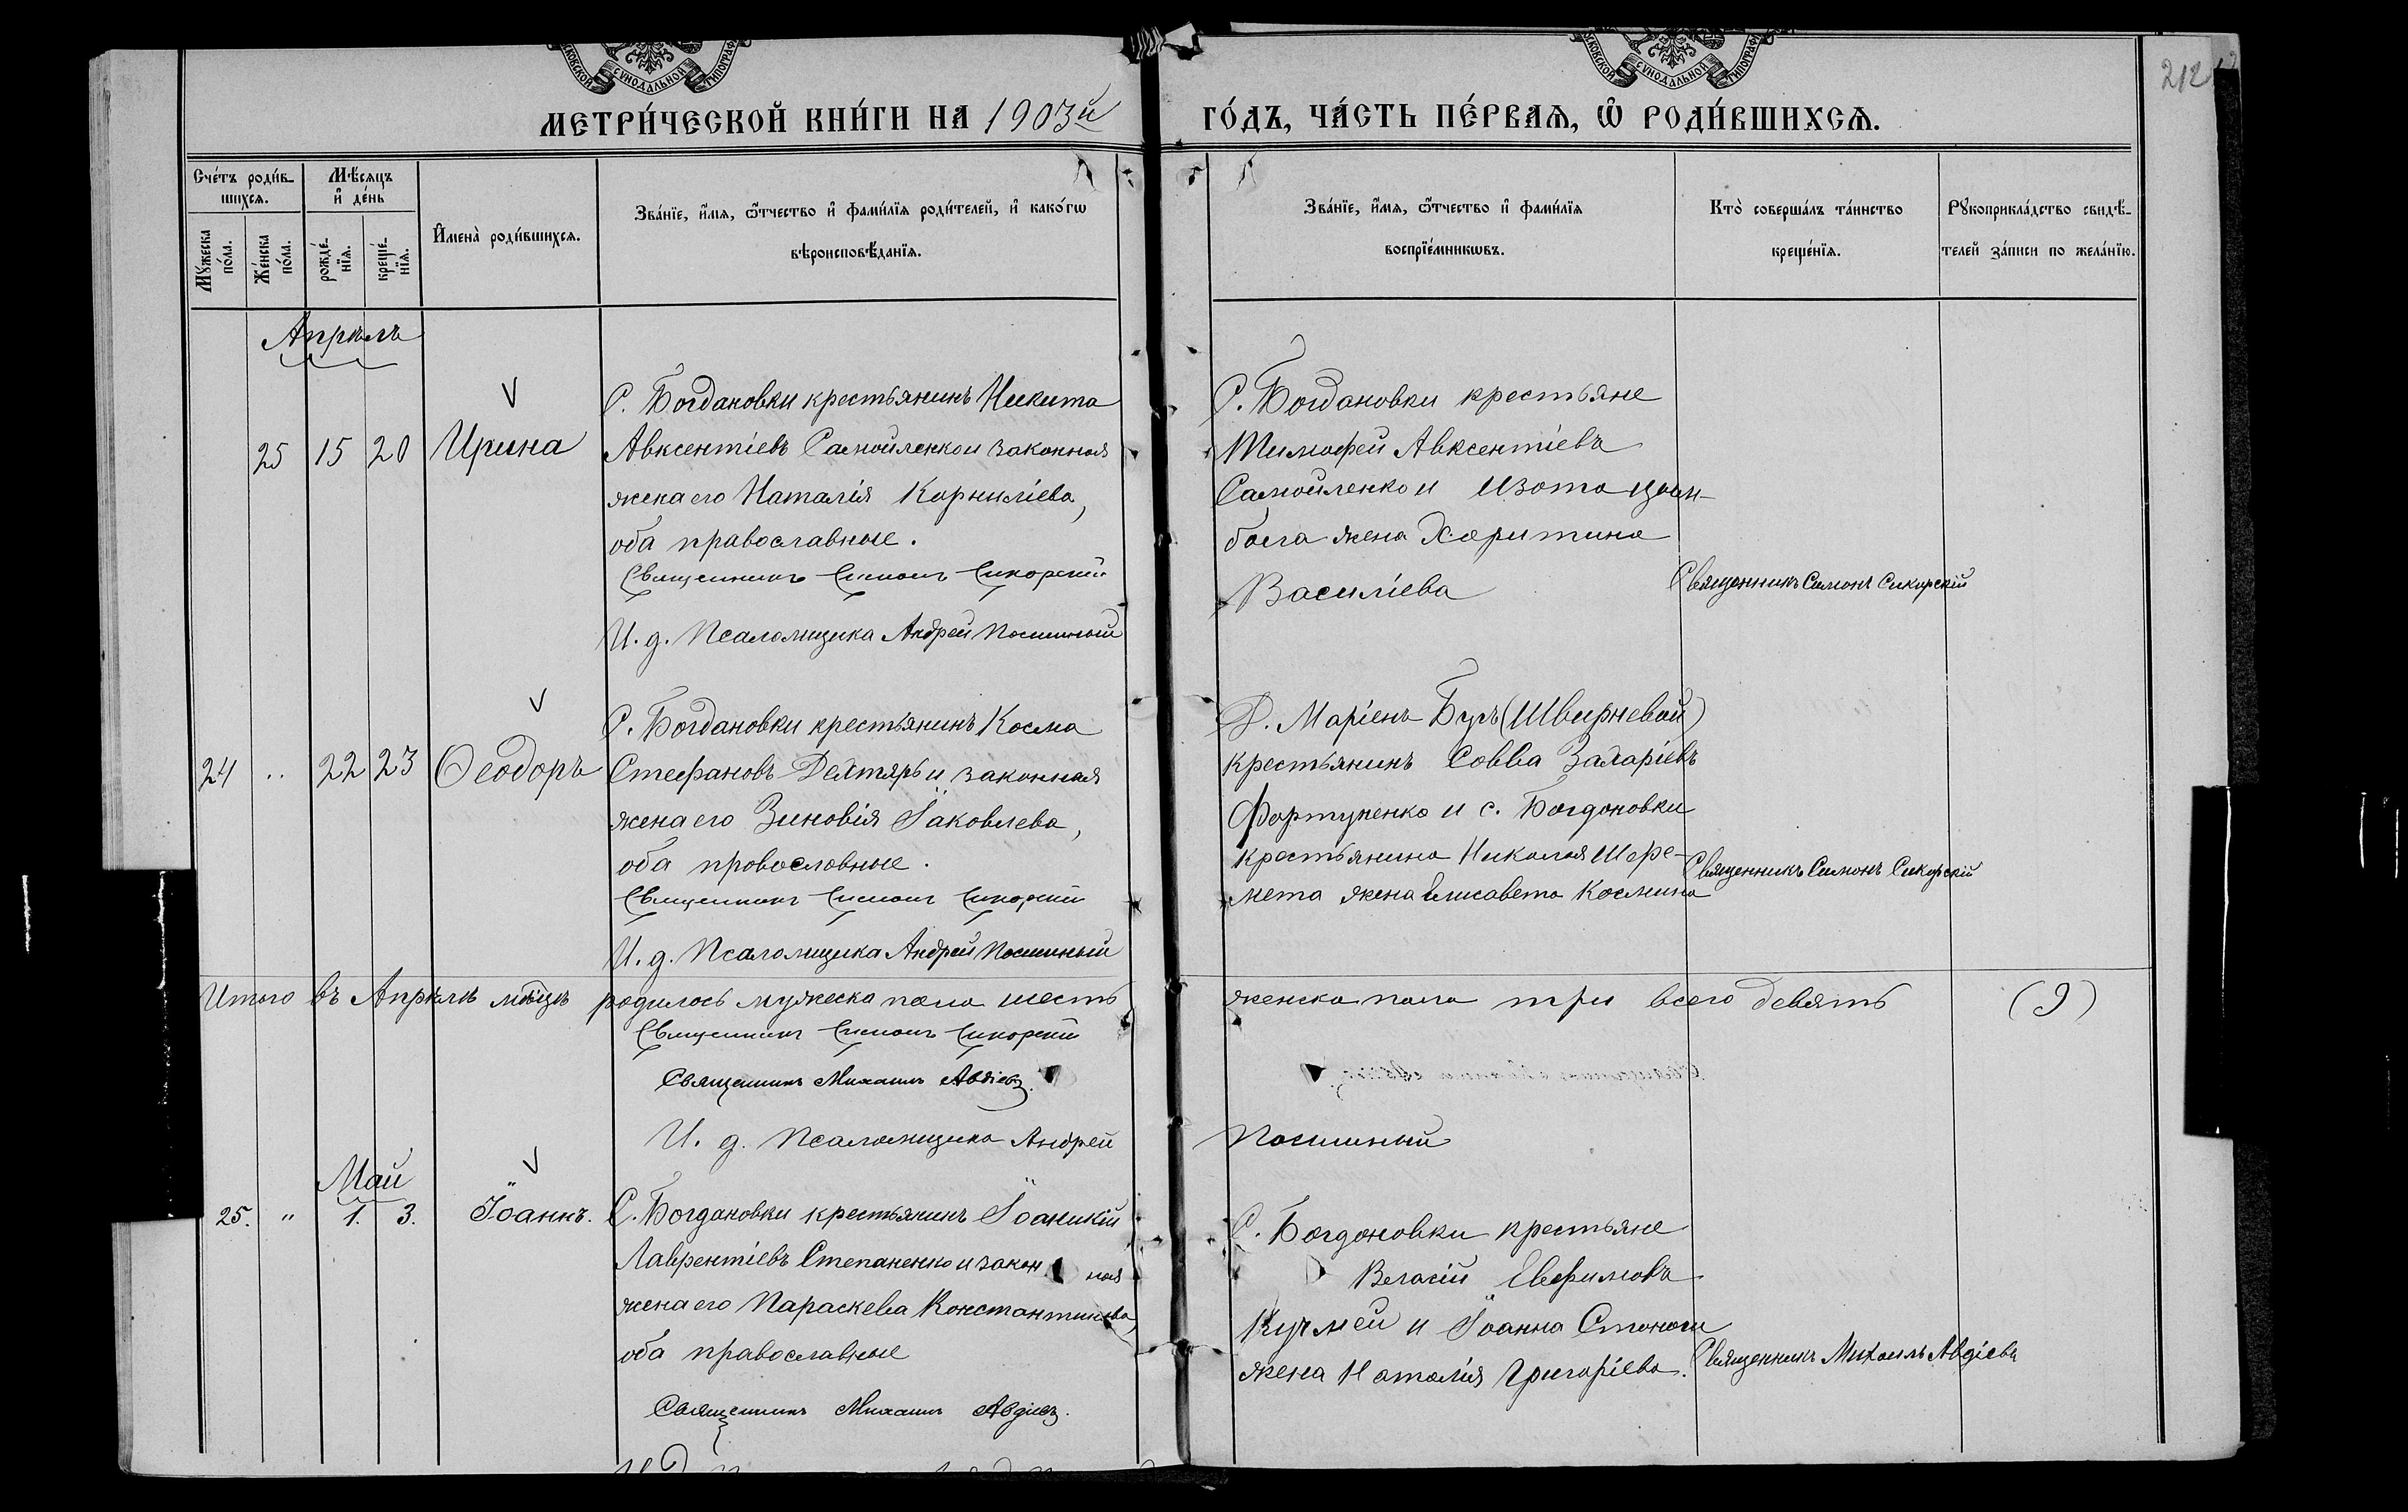 МОСКОВСКОЙ СУНОДАЛЬНОЙ ТИПОГРАФ
СКОВСКОЙ СУНОДАЛЬНОЙ ТИПОГРАФ
212
МЕТРИ́ЧЕСКОЙ КНИ́ГИ НА 1903й
ГО́ДЪ, ЧА́СТЬ ПЕ́РВАѦ, Ѡ҆ РОДИ́ВШИХСѦ.
Сче́тъ роди́в-
шихсѧ.
Мѣ́сѧцъ
и҆ де́нь
Мꙋ́жеска
по́ла.
Же́нска
по́ла.
рожде́-
нїѧ.
креще́-
нїѧ.
И҆мена̀ роди́вшихсѧ.
Зва́нїе, и҆́мѧ, ѻ҆́тчество и҆ фами́лїѧ роди́телей, и҆ како́гѡ
вѣроисповѣ́данїѧ.
Зва́нїе, и҆́мѧ, ѻ҆́тчество и҆ фами́лїѧ
воспрїе́мникѡвъ.
Кто̀ соверша́лъ та́инство
креще́нїѧ.
Рꙋкоприкла́дство свидѣ́-
телей за́писи по жела́нїю.
Апрѣль
25 15 20 Ирина
С. Богдановки крестьянинъ Никита
Авксентіевъ Самойленко и законная
жена его Наталія Корниліева,
оба православные.
Священникъ Симонъ Сикорскій
И. д. Псаломщика Андрей
С. Богдановки крестьяне
Тимофей Авксентіевъ
Самойленко и Изота
жена Харитина
Василіева
Священникъ Симонъ Сикорскій
24 " 22 23 Ѳеодоръ
С. Богдановки крестьянинъ Косма
Стефановъ Дейтярь и законная
жена его Зиновія Іаковлева,
оба православные.
Священникъ Симонъ Сикорскій
И. д. Псаломщика Андрей
Д. Маріенъ Буръ (Швирневой)
крестьянинъ Савва Захаріевъ
Фортуненко и с. Богдановки
крестьянина Николая Шере-
мета жена Елисавета Космина
Священникъ Симонъ Сикорскій
Итого въ Апрѣлѣ мѣсцѣ родилось мужеска пола шесть женска пола три всего девять (9)
Священникъ Симонъ Сикорскій
Священникъ Михаилъ Авдіевъ.
И. д. Псаломщика Андрей
Май
25. " 1. 3. Іоаннъ.
С. Богдановки крестьянинъ Іоаникій
Лаврентіевъ Степаненко и законная
жена его Параскева Константинова,
оба православные
Священникъ Михаилъ Авдіевъ.
С. Богдановки крестьяне
Власій Евфимовъ
Кучмей и Іоанна Стоноги
жена Наталія Григоріева.
Священникъ Михаилъ Авдіевъ